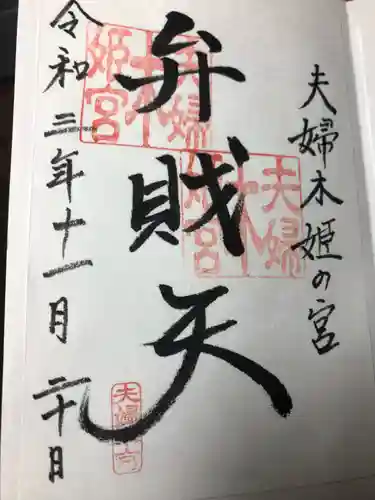 夫婦木姫の宮
弁戝天
令和三年十一月二十日
夫婦木姫宮
夫婦木姫宮